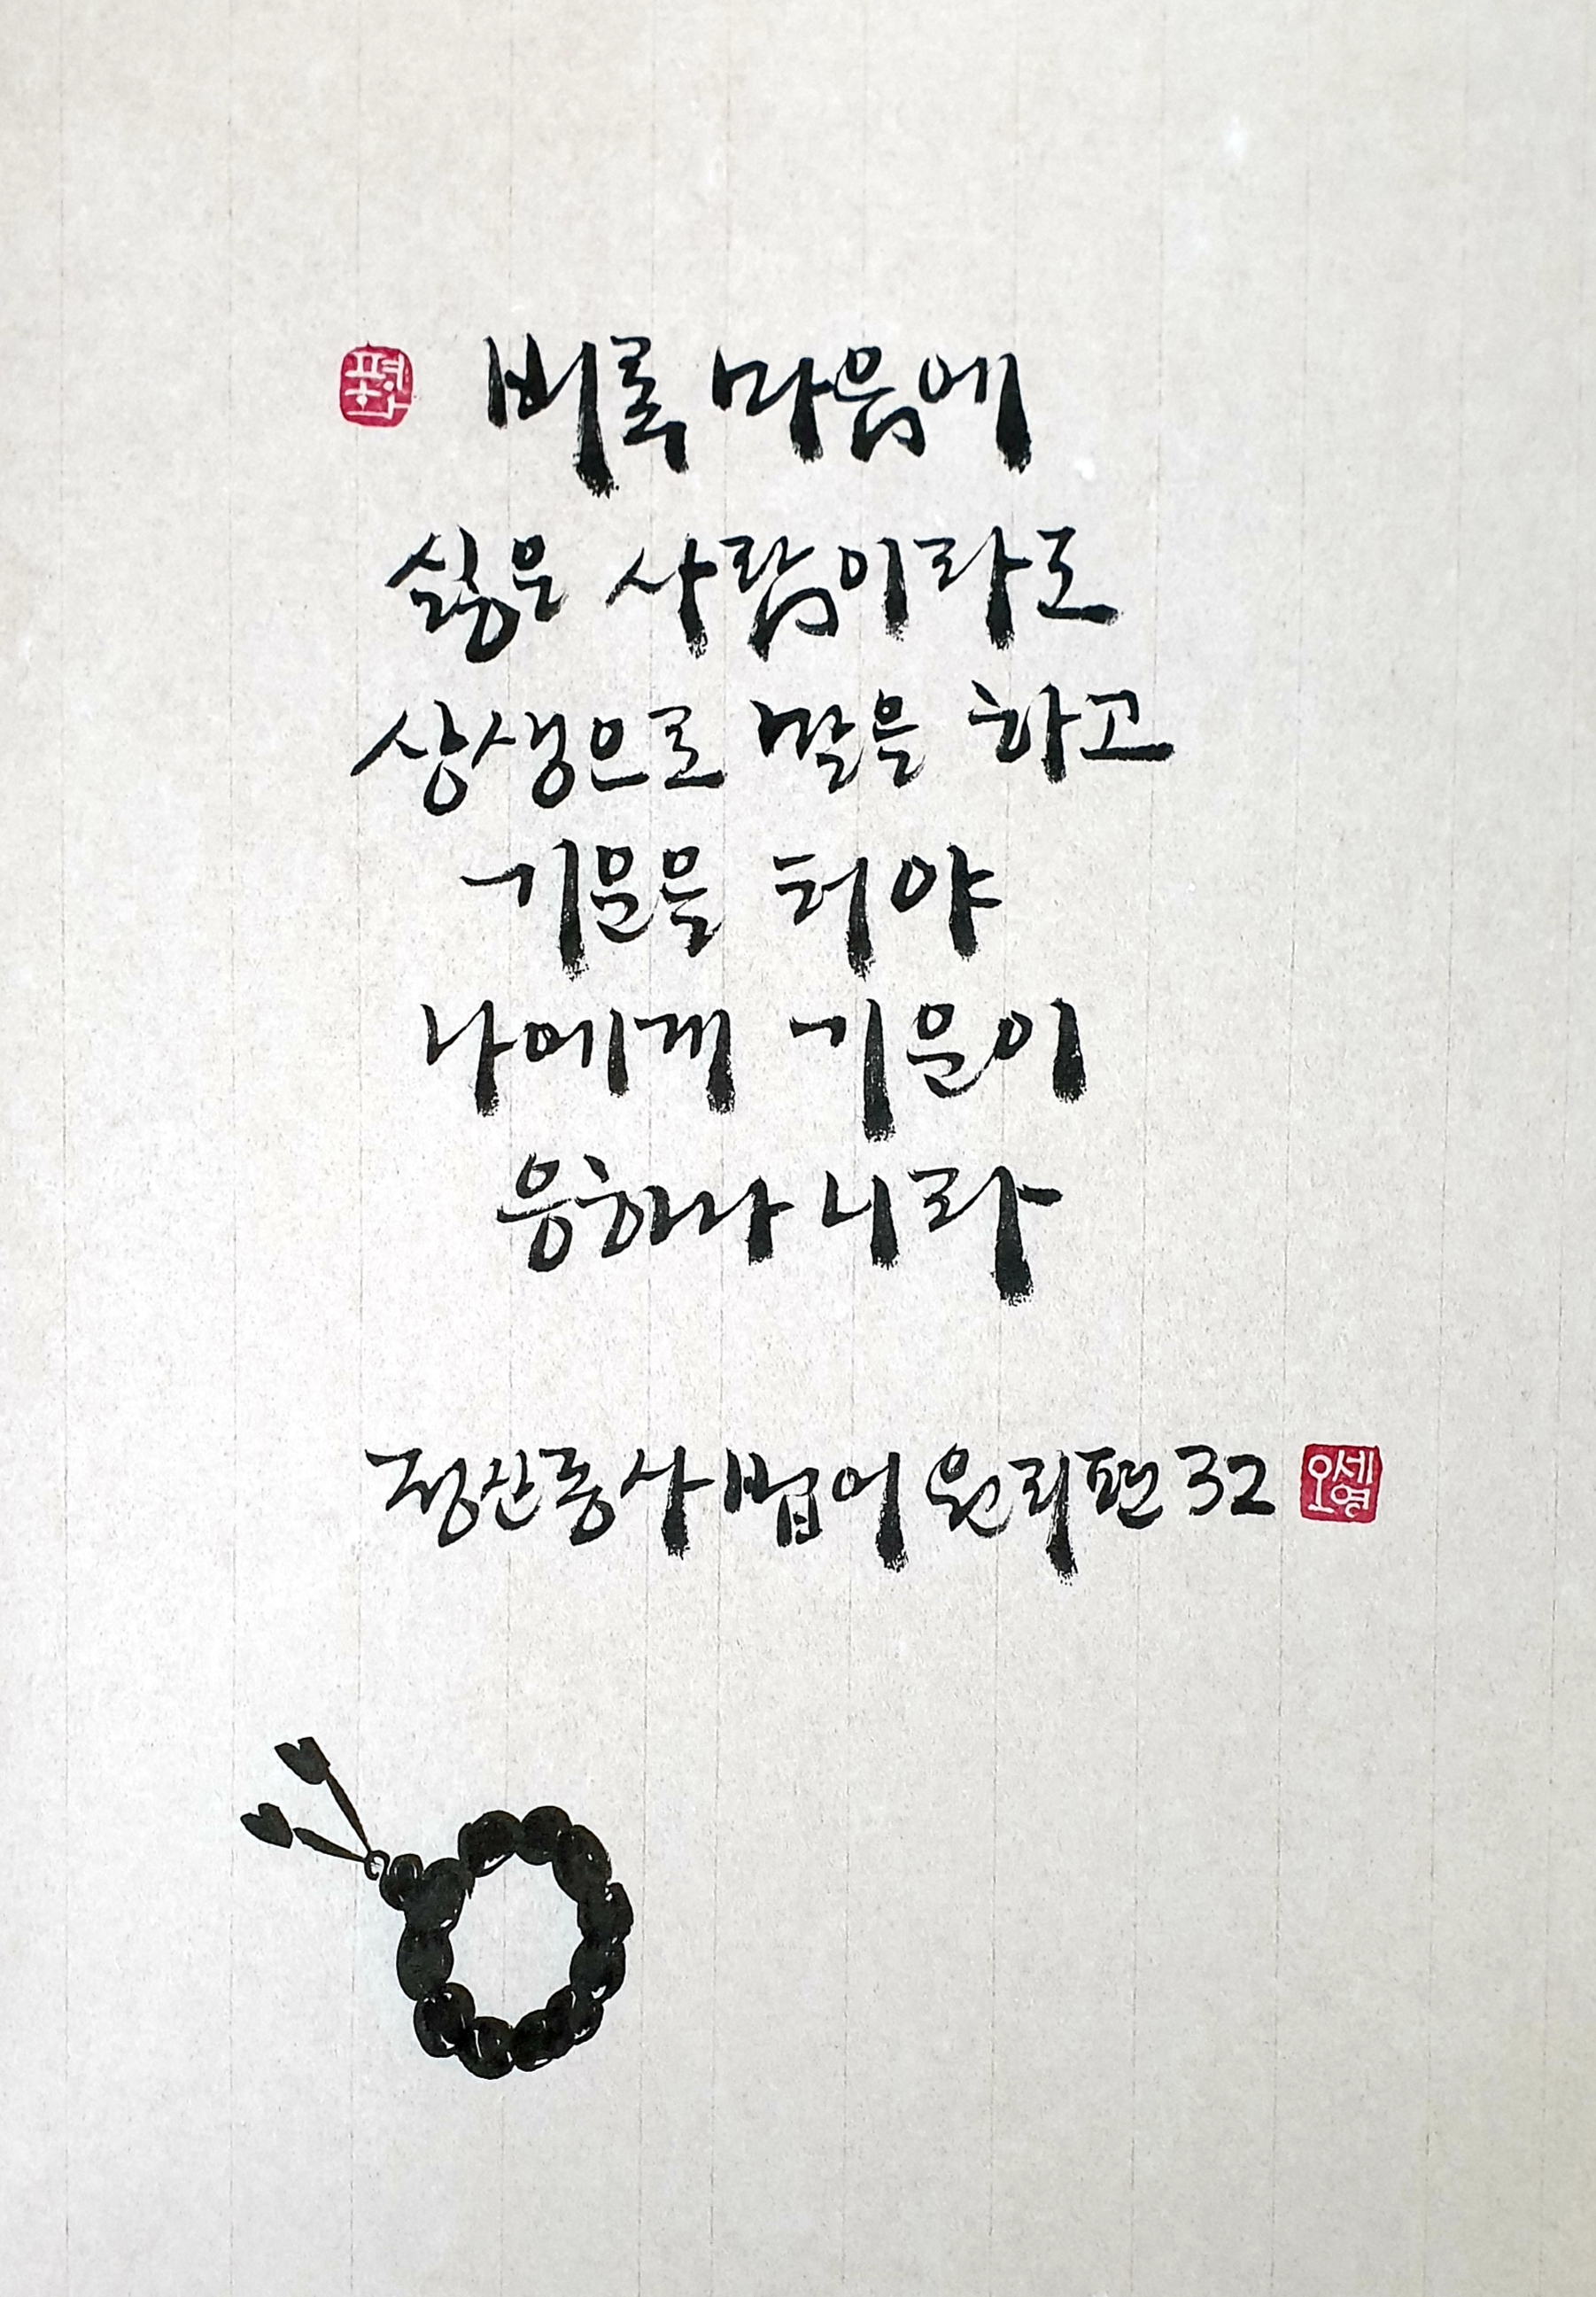 평화
비록 마음에
싫은 사람이라도
상생으로 말을 하고
기운을 터야
나에게 기운이
응하나니라
정산종사법어 원리편 32
오세영